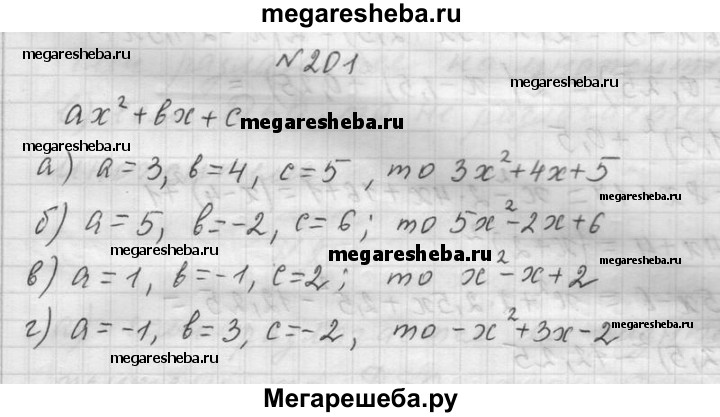 megaresheba.ru
№201
megaresheba.ru
megaresheba.ru
ax² + bx + c
megaresheba.ru
megaresheba.ru
а) a = 3, b = 4, c = 5, то 3x² + 4x + 5
megaresheba.ru
б) a = 5, b = -2, c = 6; то 5x² - 2x + 6
megaresheba.ru
megaresheba.ru
в) a = 1, b = -1, c = 2; то x² - x + 2
megaresheba.ru
г) a = -1, b = 3, c = -2, то -x² + 3x - 2
megaresheba.ru
megaresheba.ru
Мегарешеба.ру